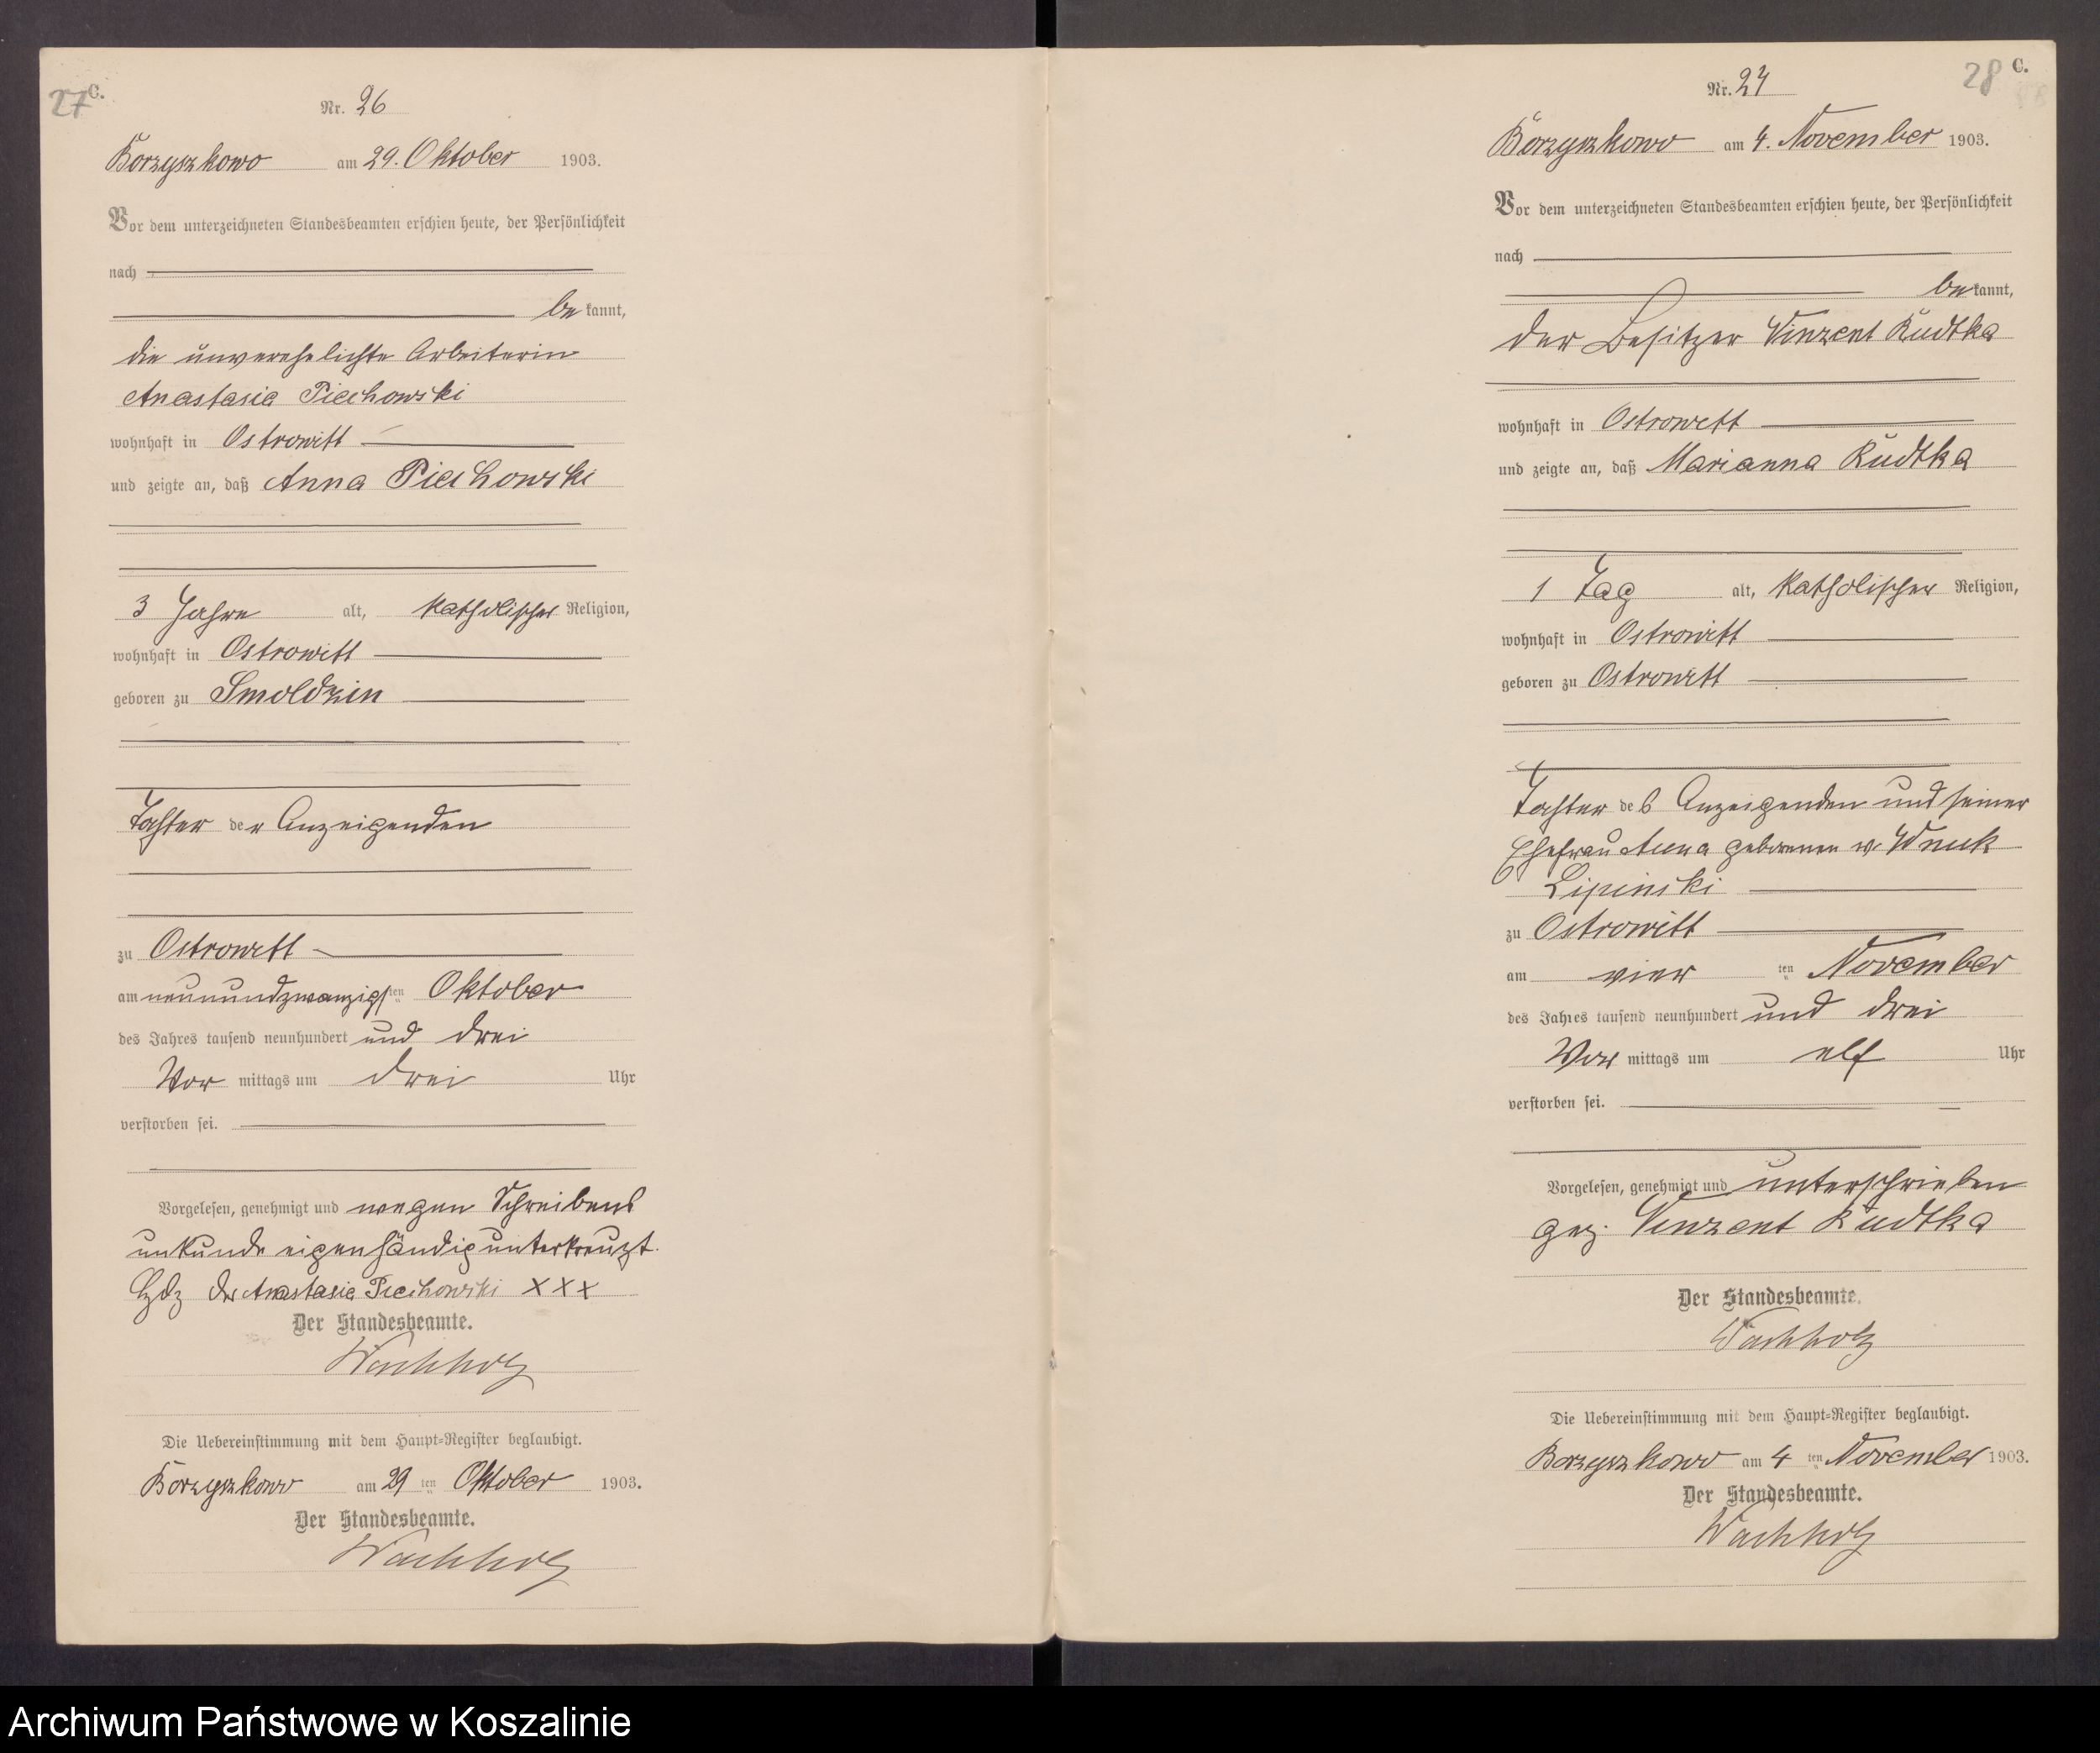 27 C.
Nr. 26
Borzyszkowo am 29. Oktober 1903.
Vor dem unterzeichneten Standesbeamten erschien heute, der Persönlichkeit
nach
be kannt,
die unverehelichte Arbeiterin
Anastasia Piechowski
wohnhaft in Ostrowitt
und zeigte an, daß Anna Piechowski
3 Jahre alt, katholischer Religion,
wohnhaft in Ostrowitt
geboren zu Smoldzin
Tochter der Anzeigenden
zu Ostrowitt
am neunundzwanzigsten Oktober
des Jahres tausend neunhundert und drei
Vor mittags um drei Uhr
verstorben sei.
Vorgelesen, genehmigt und wegen Schreibens
unkunde eigenhändig unterkreuzt.
Hdz der Anastasia Piechowski XXX
Der Standesbeamte.
Wachholz
Die Uebereinstimmung mit dem Haupt-Register beglaubigt.
Borzyszkowo am 29 ten Oktober 1903.
Der Standesbeamte.
Wachholz
28 C.
Nr. 27
Borzyszkowo am 4. November 1903.
Vor dem unterzeichneten Standesbeamten erschien heute, der Persönlichkeit
nach
be kannt,
der Besitzer Vinzent Rudtka
wohnhaft in Ostrowitt
und zeigte an, daß Marianna Rudtka
1 Tag alt, katholischer Religion,
wohnhaft in Ostrowitt
geboren zu Ostrowitt
Tochter des Anzeigenden und seiner
Ehefrau Anna geborenen v. Wnuk
Lipinski
zu Ostrowitt
am vier ten November
des Jahres tausend neunhundert und drei
Vor mittags um elf Uhr
verstorben sei.
Vorgelesen, genehmigt und unterschrieben
gez. Vinzent Rudtka
Der Standesbeamte.
Wachholz
Die Uebereinstimmung mit dem Haupt-Register beglaubigt.
Borzyszkowo am 4 ten November 1903.
Der Standesbeamte.
Wachholz
Archiwum Państwowe w Koszalinie